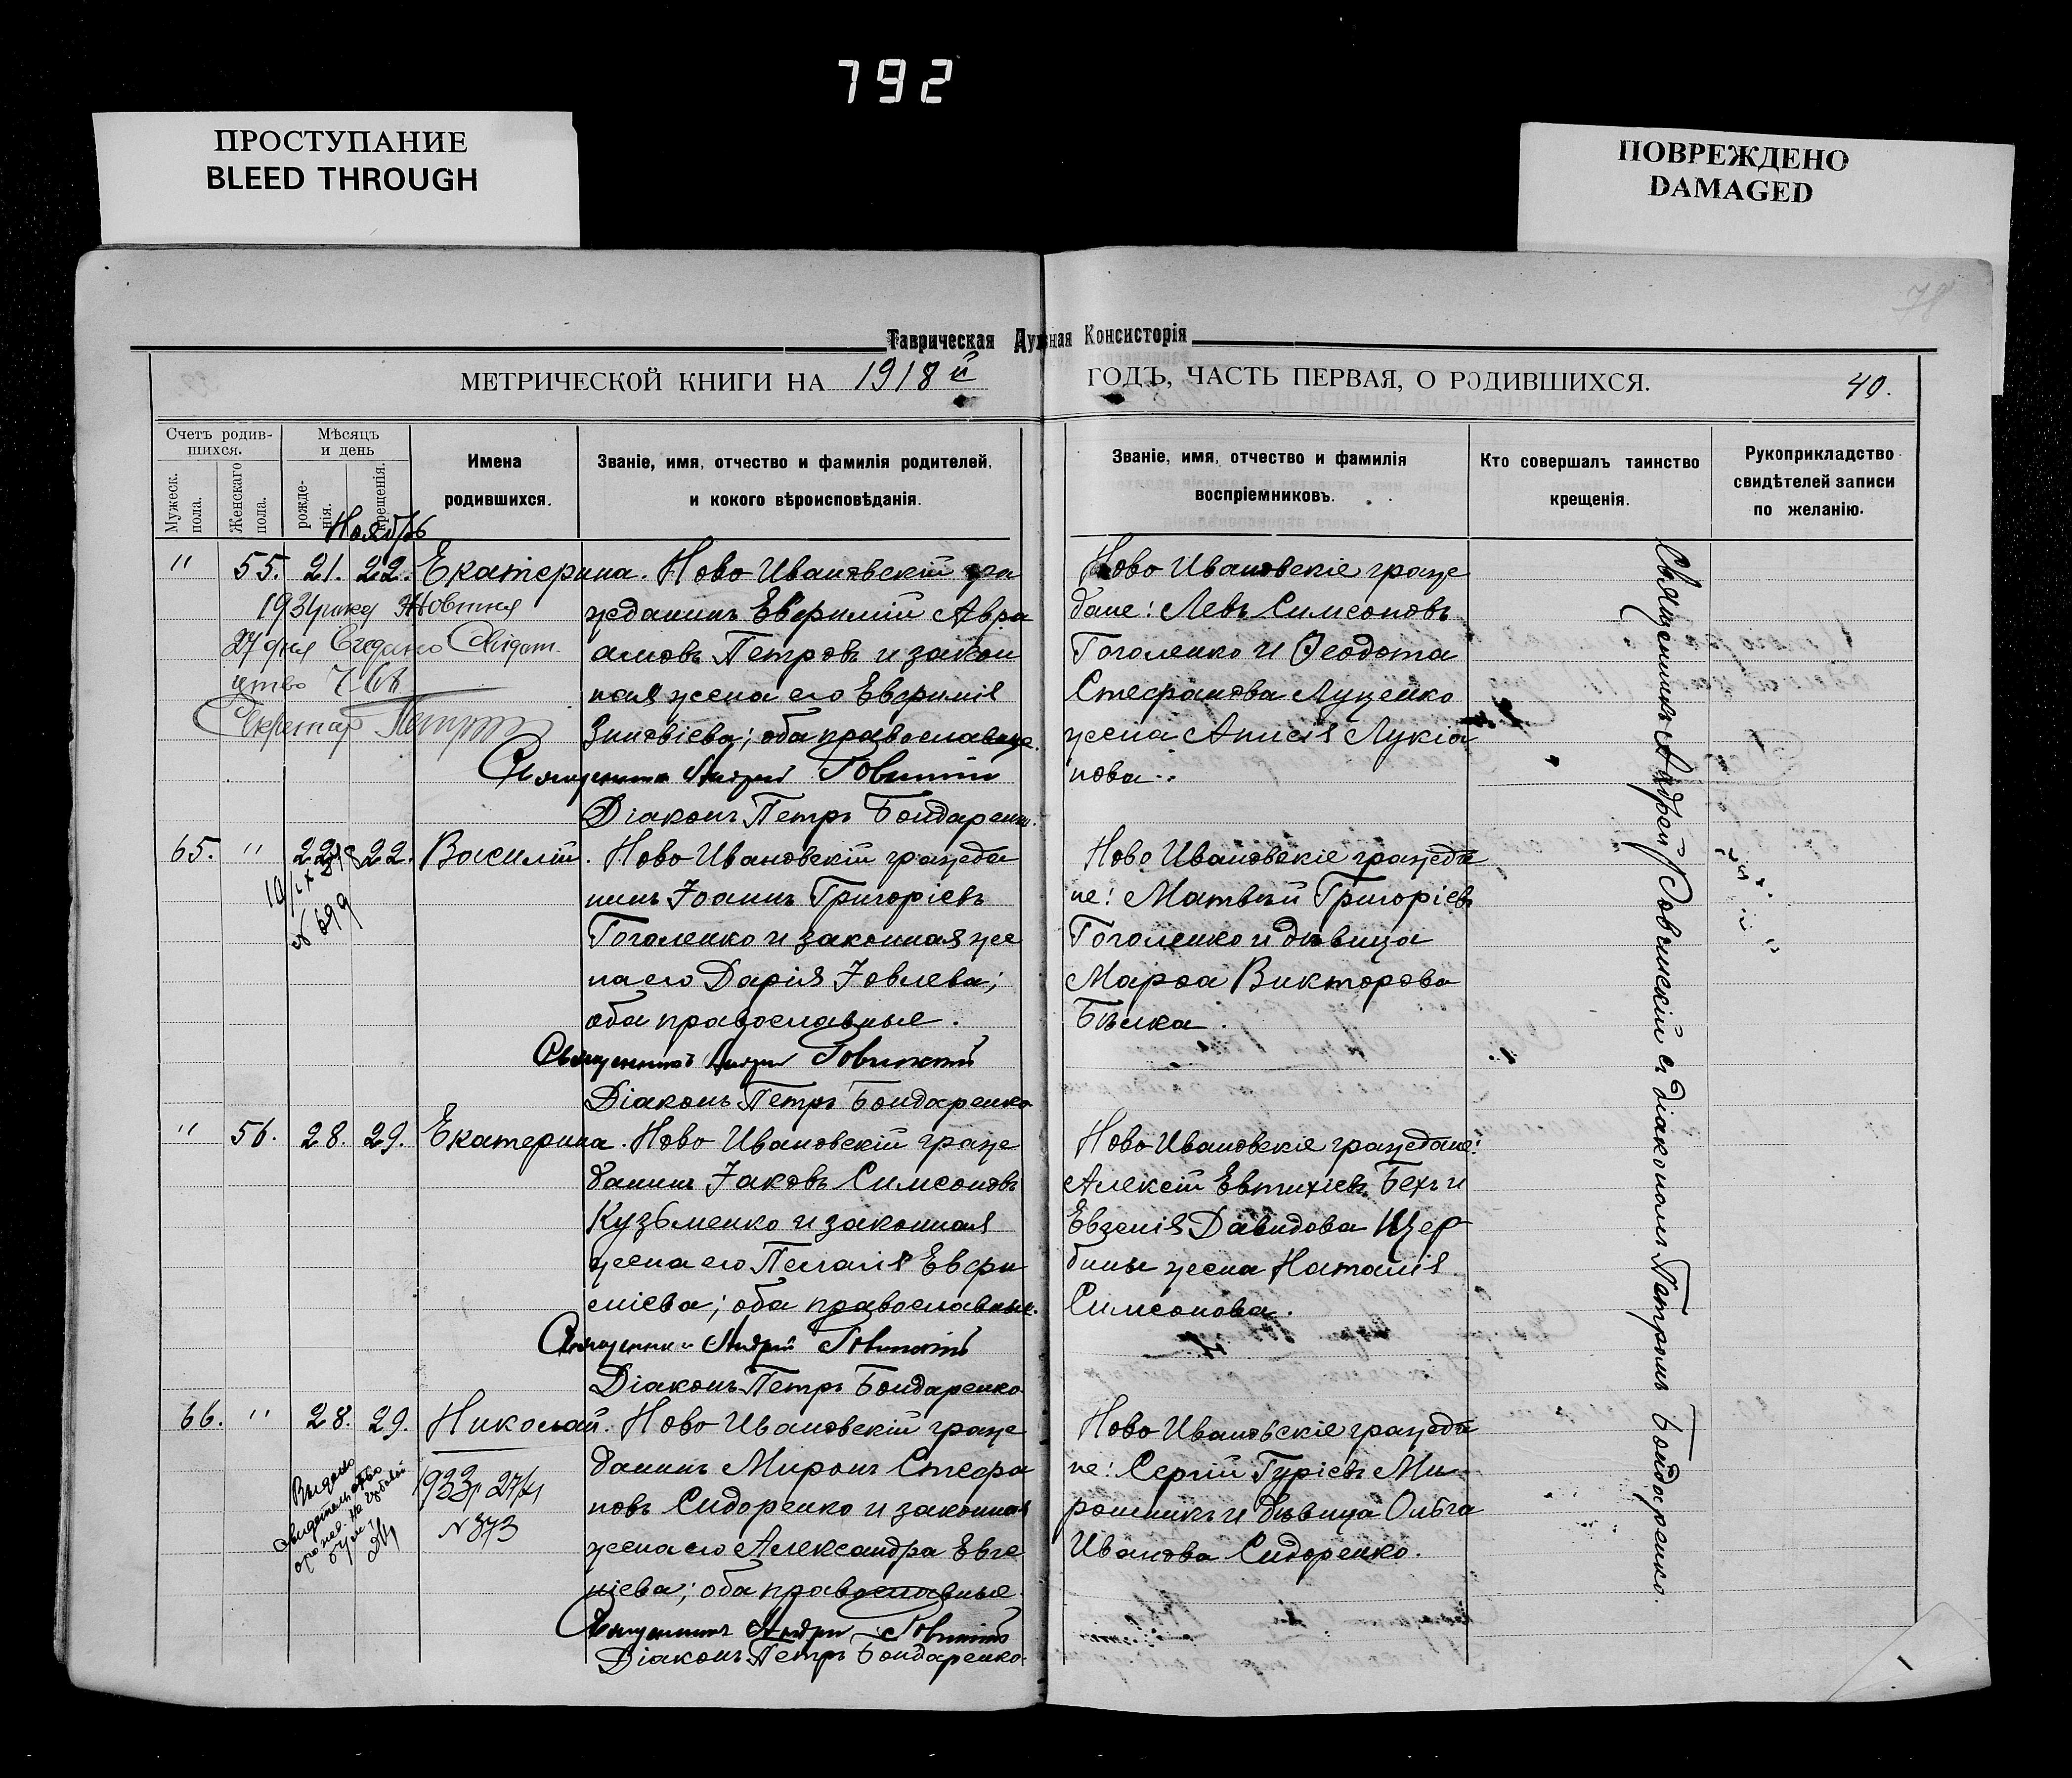 792
ПРОСТУПАНИЕ
BLEED THROUGH
ПОВРЕЖДЕНО
DAMAGED
Таврическая Духовная Консисторія
МЕТРИЧЕСКОЙ КНИГИ НА 1918й ГОДЪ, ЧАСТЬ ПЕРВАЯ, О РОДИВШИХСЯ. 40.
Счетъ родив-
шихся.
Мужеск. пола.
Женскаго пола.
Мѣсяцъ
и день
рожде-
нія.
крещенія.
Имена
родившихся.
Званіе, имя, отчество и фамилія родителей,
и кокого вѣроисповѣданія.
Званіе, имя, отчество и фамилія
воспріемниковъ.
Кто совершалъ таинство
крещенія.
Рукоприкладство
свидѣтелей записи
по желанію.
Ноябрь
" 55. 21. 22. Екатерина. Ново Ивановскій гра
жданинъ Евфимій Авра
амовъ Петровъ и закон
ная жена его Евфимія
Зиновіева; оба православные.
Священникъ Андрей
Діаконъ Петръ Бондаренко.
1934 року Жовтня
27 дня
Секретар
Ново Ивановскіе граж
дане: Левъ Симеоновъ
Гоголенко и Ѳеодота
Стефанова Луценко
жена Анисія Лукіа
нова.
65. " 22. 22. Василій. Ново Ивановскій гражда
нинъ Іоаннъ Григоріевъ
Гоголенко и законная же
на его Дарія Іовлева;
оба православные.
Священникъ Андрей
Діаконъ Петръ Бондаренко
N 699
Ново Ивановскіе гражда
не: Матвѣй Григоріевъ
Гоголенко и дѣвица
Марѳа Викторова
Бѣлка.
" 56. 28. 29. Екатерина. Ново Ивановскій граж
данинъ Іаковъ Симеоновъ
Кузьменко и законная
жена его Пелагія Евфи
міева; оба православные.
Священникъ Андрей
Діаконъ Петръ Бондаренко
Ново Ивановскіе граждане:
Алексій Евтихіевъ Бехъ и
Евгенія Давидова Щер
бины жена Наталія
Симеонова.
66. " 28. 29. Николай. Ново Ивановскій граж
данинъ Миронъ Стефа
новъ Сидоренко и законная
жена его Александра Евге
ніева; оба православные.
Священникъ Андрей
Діаконъ Петръ Бондаренко
Выдано
N 373
Ново Ивановскіе гражда
не: Сергій Гуріевъ Ми-
рошникъ и дѣвица Ольга
Иванова Сидоренко.
Священникъ Андрей Ровинскій съ діакономъ Петромъ Бондаренко.